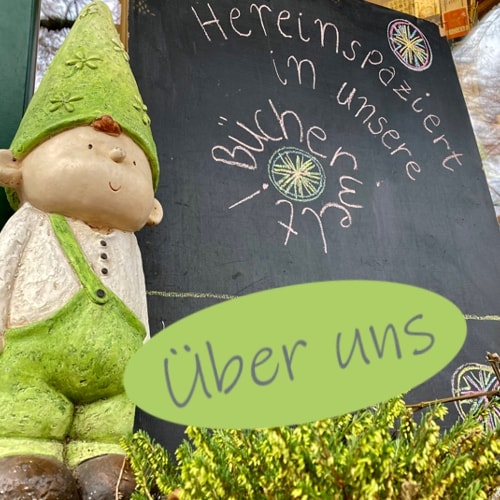 Hereinspaziert
in unsere
Bücherwelt!
Über uns